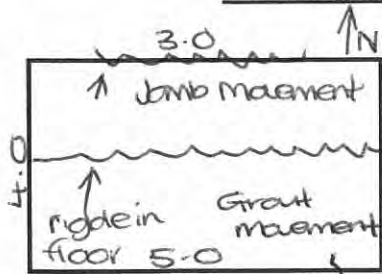 3.0
N
Jamb Movement
4.0
ridge in
floor
Grout
movement
5.0